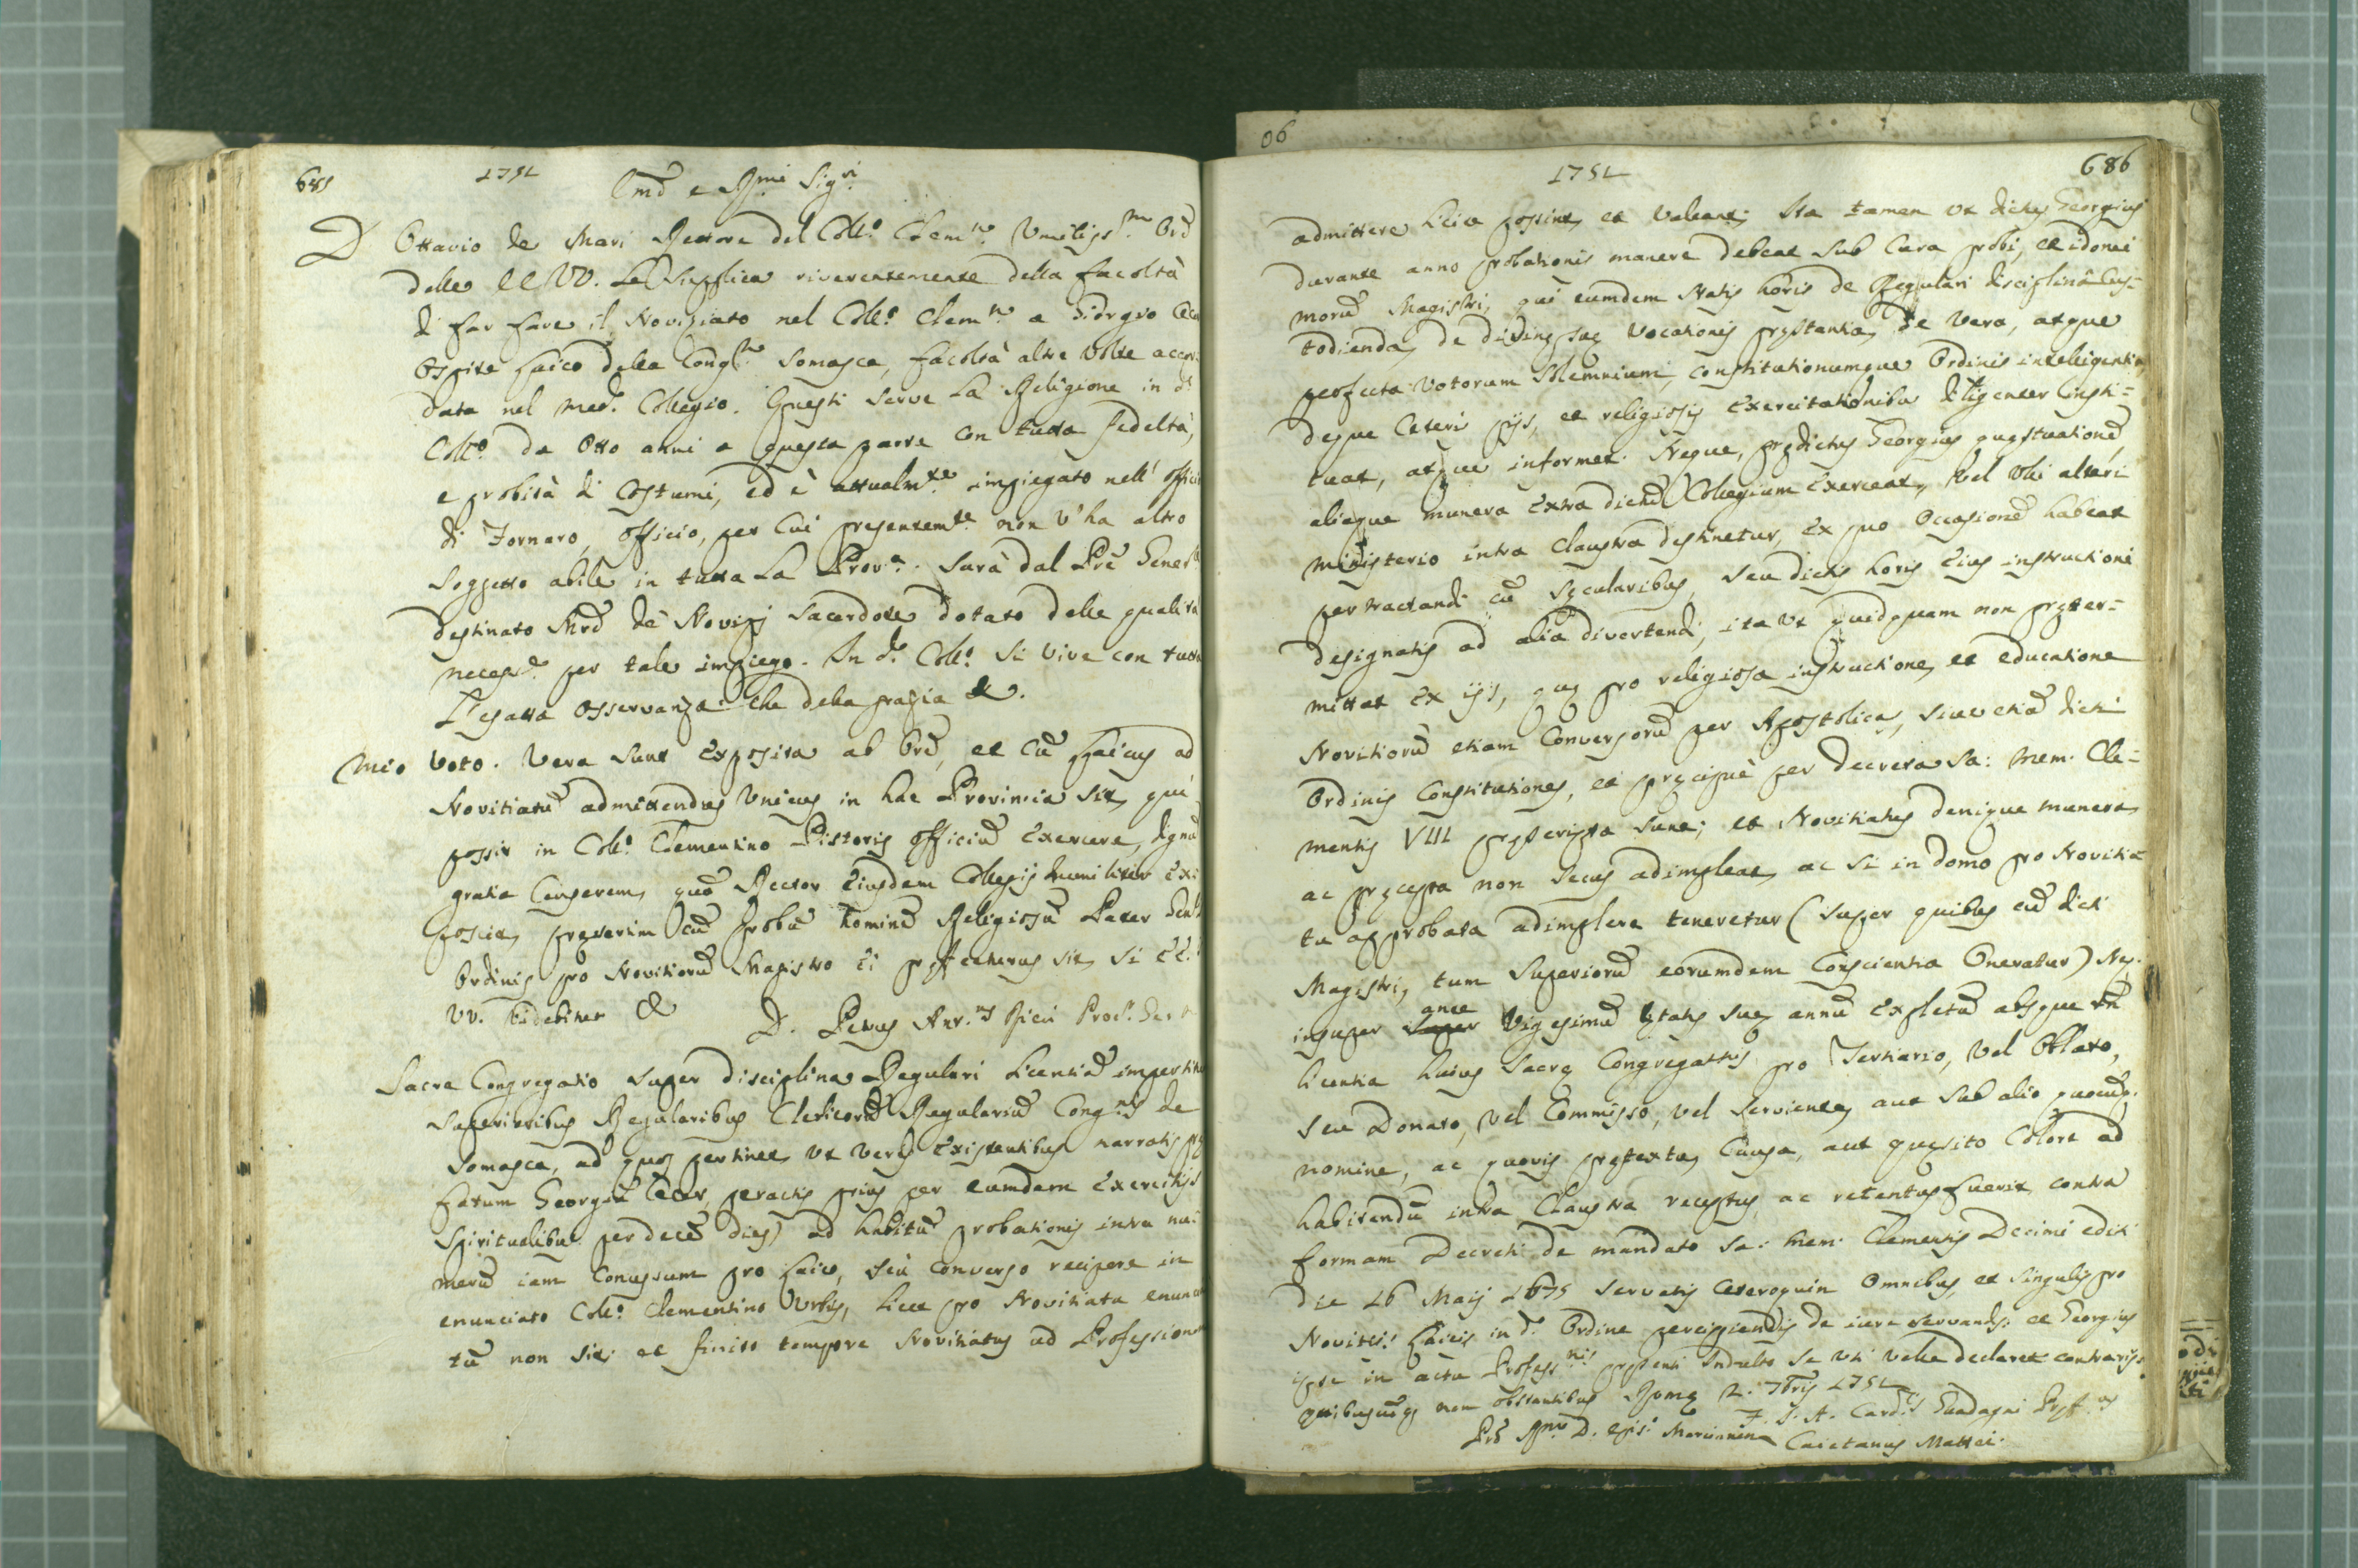 685
1751
Emi e Rmi Sigri
D Ottavio de Mari Rettore del Collo Clemno Umilissmo Ore
delle EE VV. Le Supplica riverentemente della facoltà
di far fare il Noviziato nel Collo Clemno a Giorgio
Ospite Laico della Congne Somasca, facoltà altre volte accor
data nel medo Collegio. Questi serve la Religione in do
Collo da otto anni a questa parte con tutta fedeltà,
e probità di Costumi, ed è attualmte impiegato nell' officio
di Fornaro, officio, per cui presentemte non v'ha altro
soggetto abile in tutta la Prova. Sarà dal Pre Generle
destinato Mro de Novizj Sacerdote dotato delle qualità
necessie per tale impiego. In do Collo si vive con tutta
l'esatta osservanza. Che della grazia &.
Mio Voto. Vera sunt exposita ab Ore, et cum Laicus ad
Novitiatum admittendus Unicus in hac Provincia sit, qui
possit in Collo Clementino Pistoris officium exercere, dignum
gratia censerem, quam Rector eiusdem Collegij humiliter ex
poscit, presertim cum probum hominem Religiosum Pater Genlis
Ordinis pro Novitiorum Magistro ei prefecturus sit, si EE.
VV. videbitur &
D. Petrus Ant.us Ricci Proc. Gen.
Sacra Congregatio super disciplina Regulari licentiam impertit
Superioribus Regularibus Clericorum Regularium Congnis de
Somasca, ad quos pertinet, ut veris existentibus narratis pre
fatum Georgium peractis prius per eumdem Exercitijs
Spiritualibus per decem dies) ad habitum probationis intra nu-
merum iam concessum pro Laico, seu converso recipere in
enunciato Collo Clementino Urbis, licet pro Novitiatu enuncia
tum non sit; et finito tempore Novitiatus ad Professionem
06
1751
686
admittere licite possint, et valeant; Ita tamen ut dictus Georgius
durante anno probationis manere debeat sub cura probi, et idonei
morum Magistri, qui eumdem statis horis de Regulari disciplina cus-
todienda, de divinę suę vocationis pręstantia, de vera, atque
perfecta votorum solemnium, constitutionumque Ordinis intelligentia,
deque ceteris pijs, et religiosis exercitationibus diligenter insti-
tuat, atque informet. Neque, prędictus Georgius quęstuationem
aliaque munera extra dictum Collegium exerceat, vel ulli alteri
ministerio intra claustra destinetur, ex quo occasionem habeat
pertractandi cum sęcularibus, seu dictis horis eius instructioni
designatis ad alia divertendi, ita ut quidquam non pręter-
mittat ex ijs, quę pro religiosa instructione, et educatione
Novitiorum etiam Conversorum per Apostolicas, sive etiam dicti
Ordinis Constitutiones, et pręcipuè per decreta sa: mem. Cle-
mentis VIII pręscripta sunt; et Novitiatus denique munera
ac pręcepta non secus adimpleat, ac si in domo pro Novitia-
tu approbata adimplere teneretur (super quibus cum dicti
Magistri, tum Superiorum eorumdem Conscientia Oneratur) Neq.
insuper ante vigesimum ętatis suę annum expletum absque
licentia huius Sacrę Congregatnis pro Tertiario, vel Oblato,
seu Donato, vel Commisso, vel serviente, aut sub alio quocumq.
nomine, ac quovis prętextu, causa, aut quesito colore ad
habitandum intra Claustra receptus, ac retentus fuerit, contra
formam Decreti de mandato sa: mem: Clementis Decimi editi
die 16 Maij 1675 servatis ceteroquin omnibus, et singulis pro
Novitijs Laicis in do Ordine percipiendis de iure servandis: et Georgius
ipse in actu Professnis pręsenti Indulto se uti velle declaret contrarijs
quibuscumq. non obstantibus Romę 2. 7bris 1751
F. J. A. Card.lis Guadagni Pręf.us
Pro D. Epis. Caietanus Mattei.